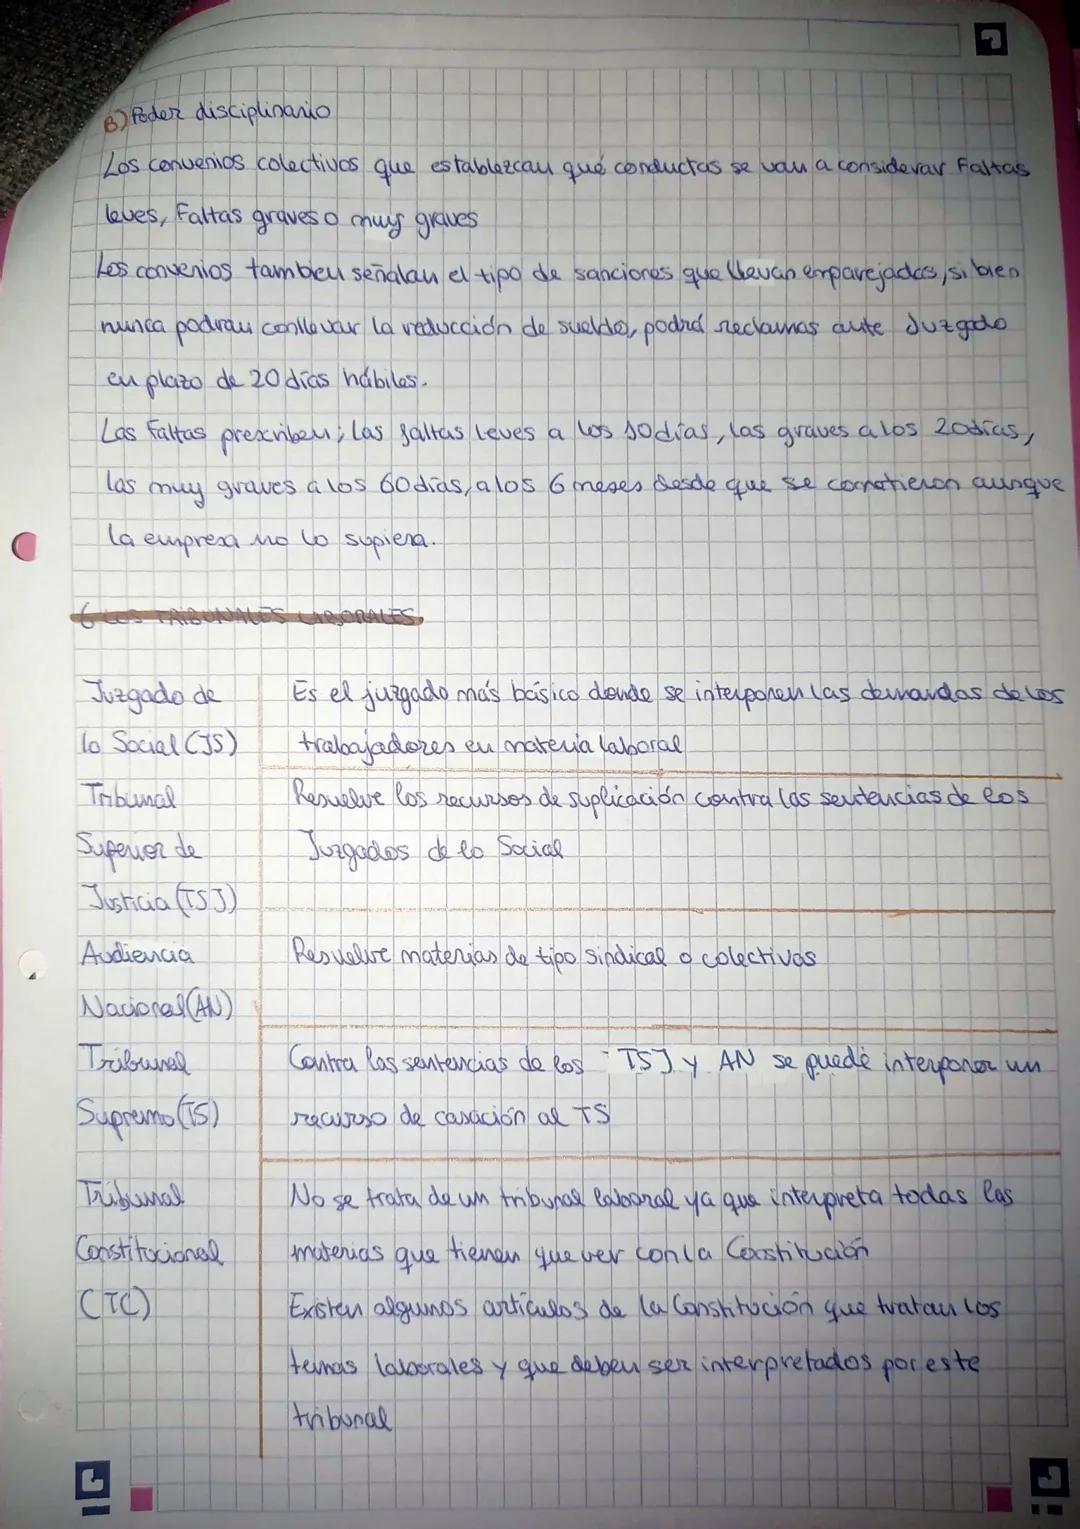 B) Poder disciplinario
Los convenios colectivos que establezcan qué conductas se van a considerar Faltas
leves, Faltas graves o muy graves
Los convenios tambien señalan el tipo de sanciones que llevan emparejadas, si bien
nunca podran conllevar la reducción de sueldo, podrá reclamos ante Juzgado
en plazo de 20 días hábiles.
Las Faltas prescriben; las faltas leves a los 10 días, las graves a los 20 días,
las muy graves a los 60 días, a los 6 meses desde que se cometieron aunque
la empresa no lo supiera.
6 LOS TRIBUNALES LABORALES.
Juzgado de
lo Social (JS)
Es el juzgado más básico donde se interponen las demandas de los
trabajadores en materia laboral
Tribunal
Superior de
Justicia (TSJ)
Resuelve los recursos de suplicación contra las sentencias de los
Juzgados de lo Social
Audiencia
Nacional (AN)
Resuelve materias de tipo sindical o colectivas
Tribunal
Supremo (TS)
Contra las sentencias de los TSJ y AN se puede interponer un
recurso de casación al TS
Tribunal
Constitucional
(TC)
No se trata de un tribunal laboral ya que interpreta todas las
materias que tienen que ver con la Constitución
Existen algunos artículos de la Constitución que tratan los
temas laborales y que deben ser interpretados por este
tribunal